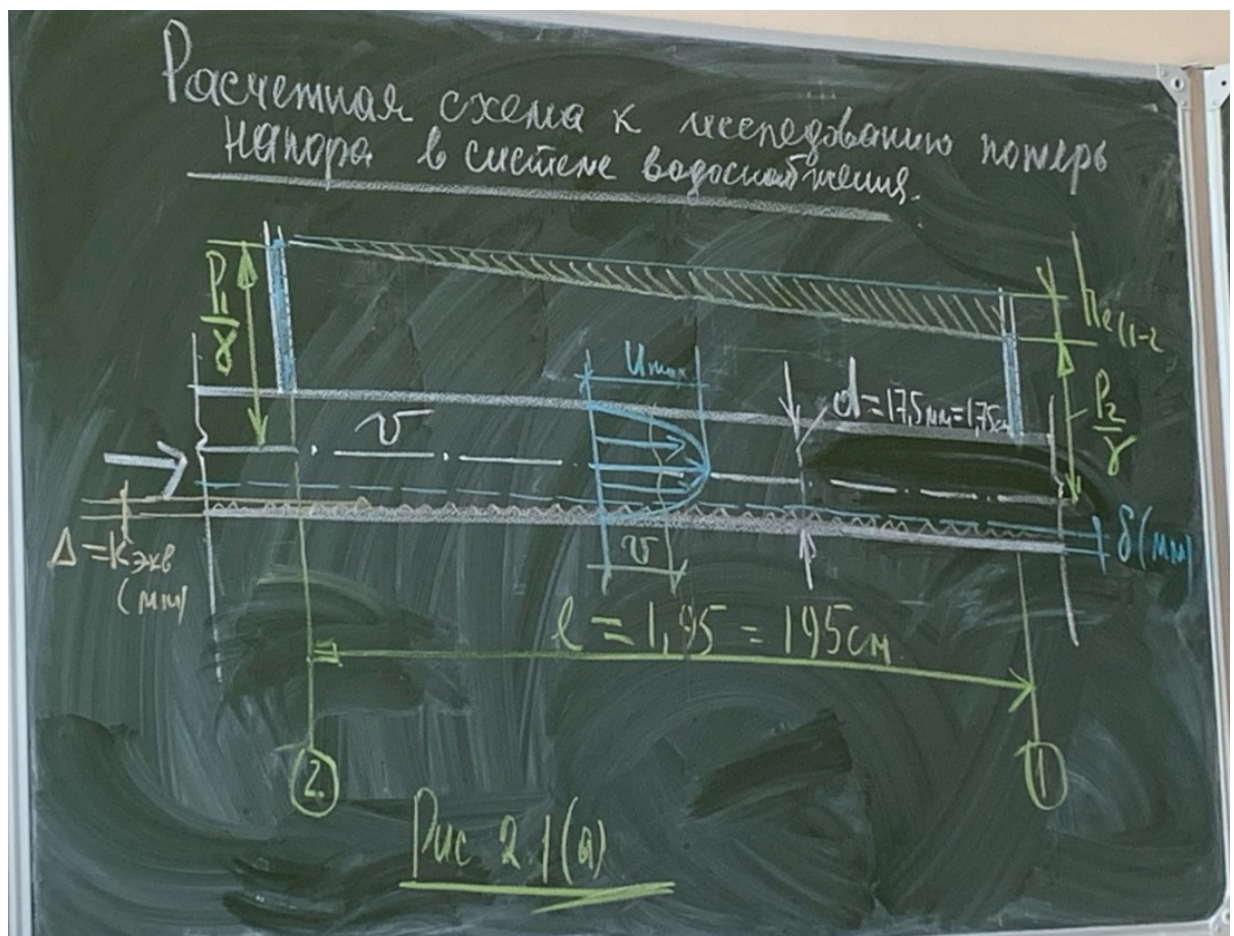 Расчетная схема к исследованию потерь
напора в системе водоснабжения.
P₁/γ
hℓ(1-2
Uмах
d=17,5мм=1,75см
υ
P₂/γ
Δ=Kэкв
(мм)
υ
δ(мм)
ℓ=1,95=195см
2.
1
Рис 2.1(а)